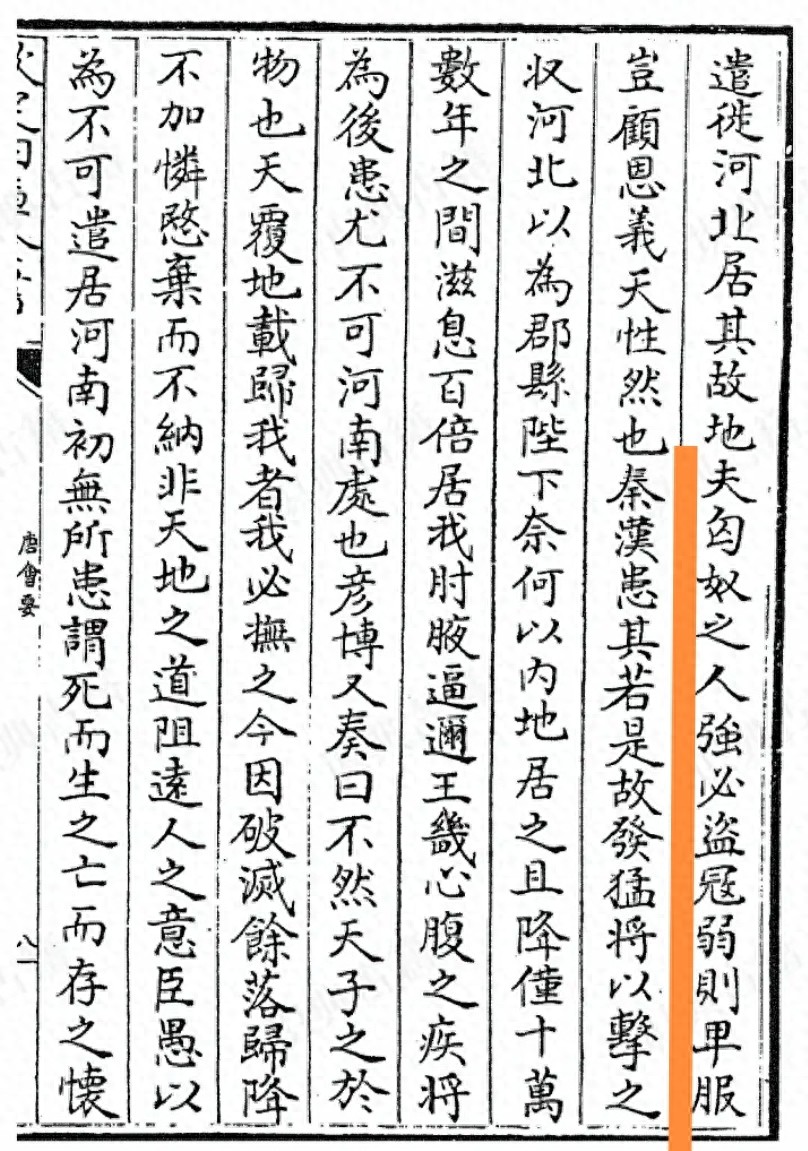 遣徙河北居其故地夫匈奴之人強必盜冦弱則卑服
豈顧恩義天性然也秦漢患其若是故發猛将以擊之
収河北以為郡縣陛下奈何以内地居之且降僅十萬
數年之間滋息百倍居我肘腋逼邇王畿心腹之疾将
為後患尤不可河南處也彦博又奏曰不然天子之於
物也天覆地載歸我者我必撫之今因破滅餘落歸降
不加憐愍棄而不納非天地之道阻遠人之意臣愚以
為不可遣居河南初無所患謂死而生之亡而存之懐
唐會要
八